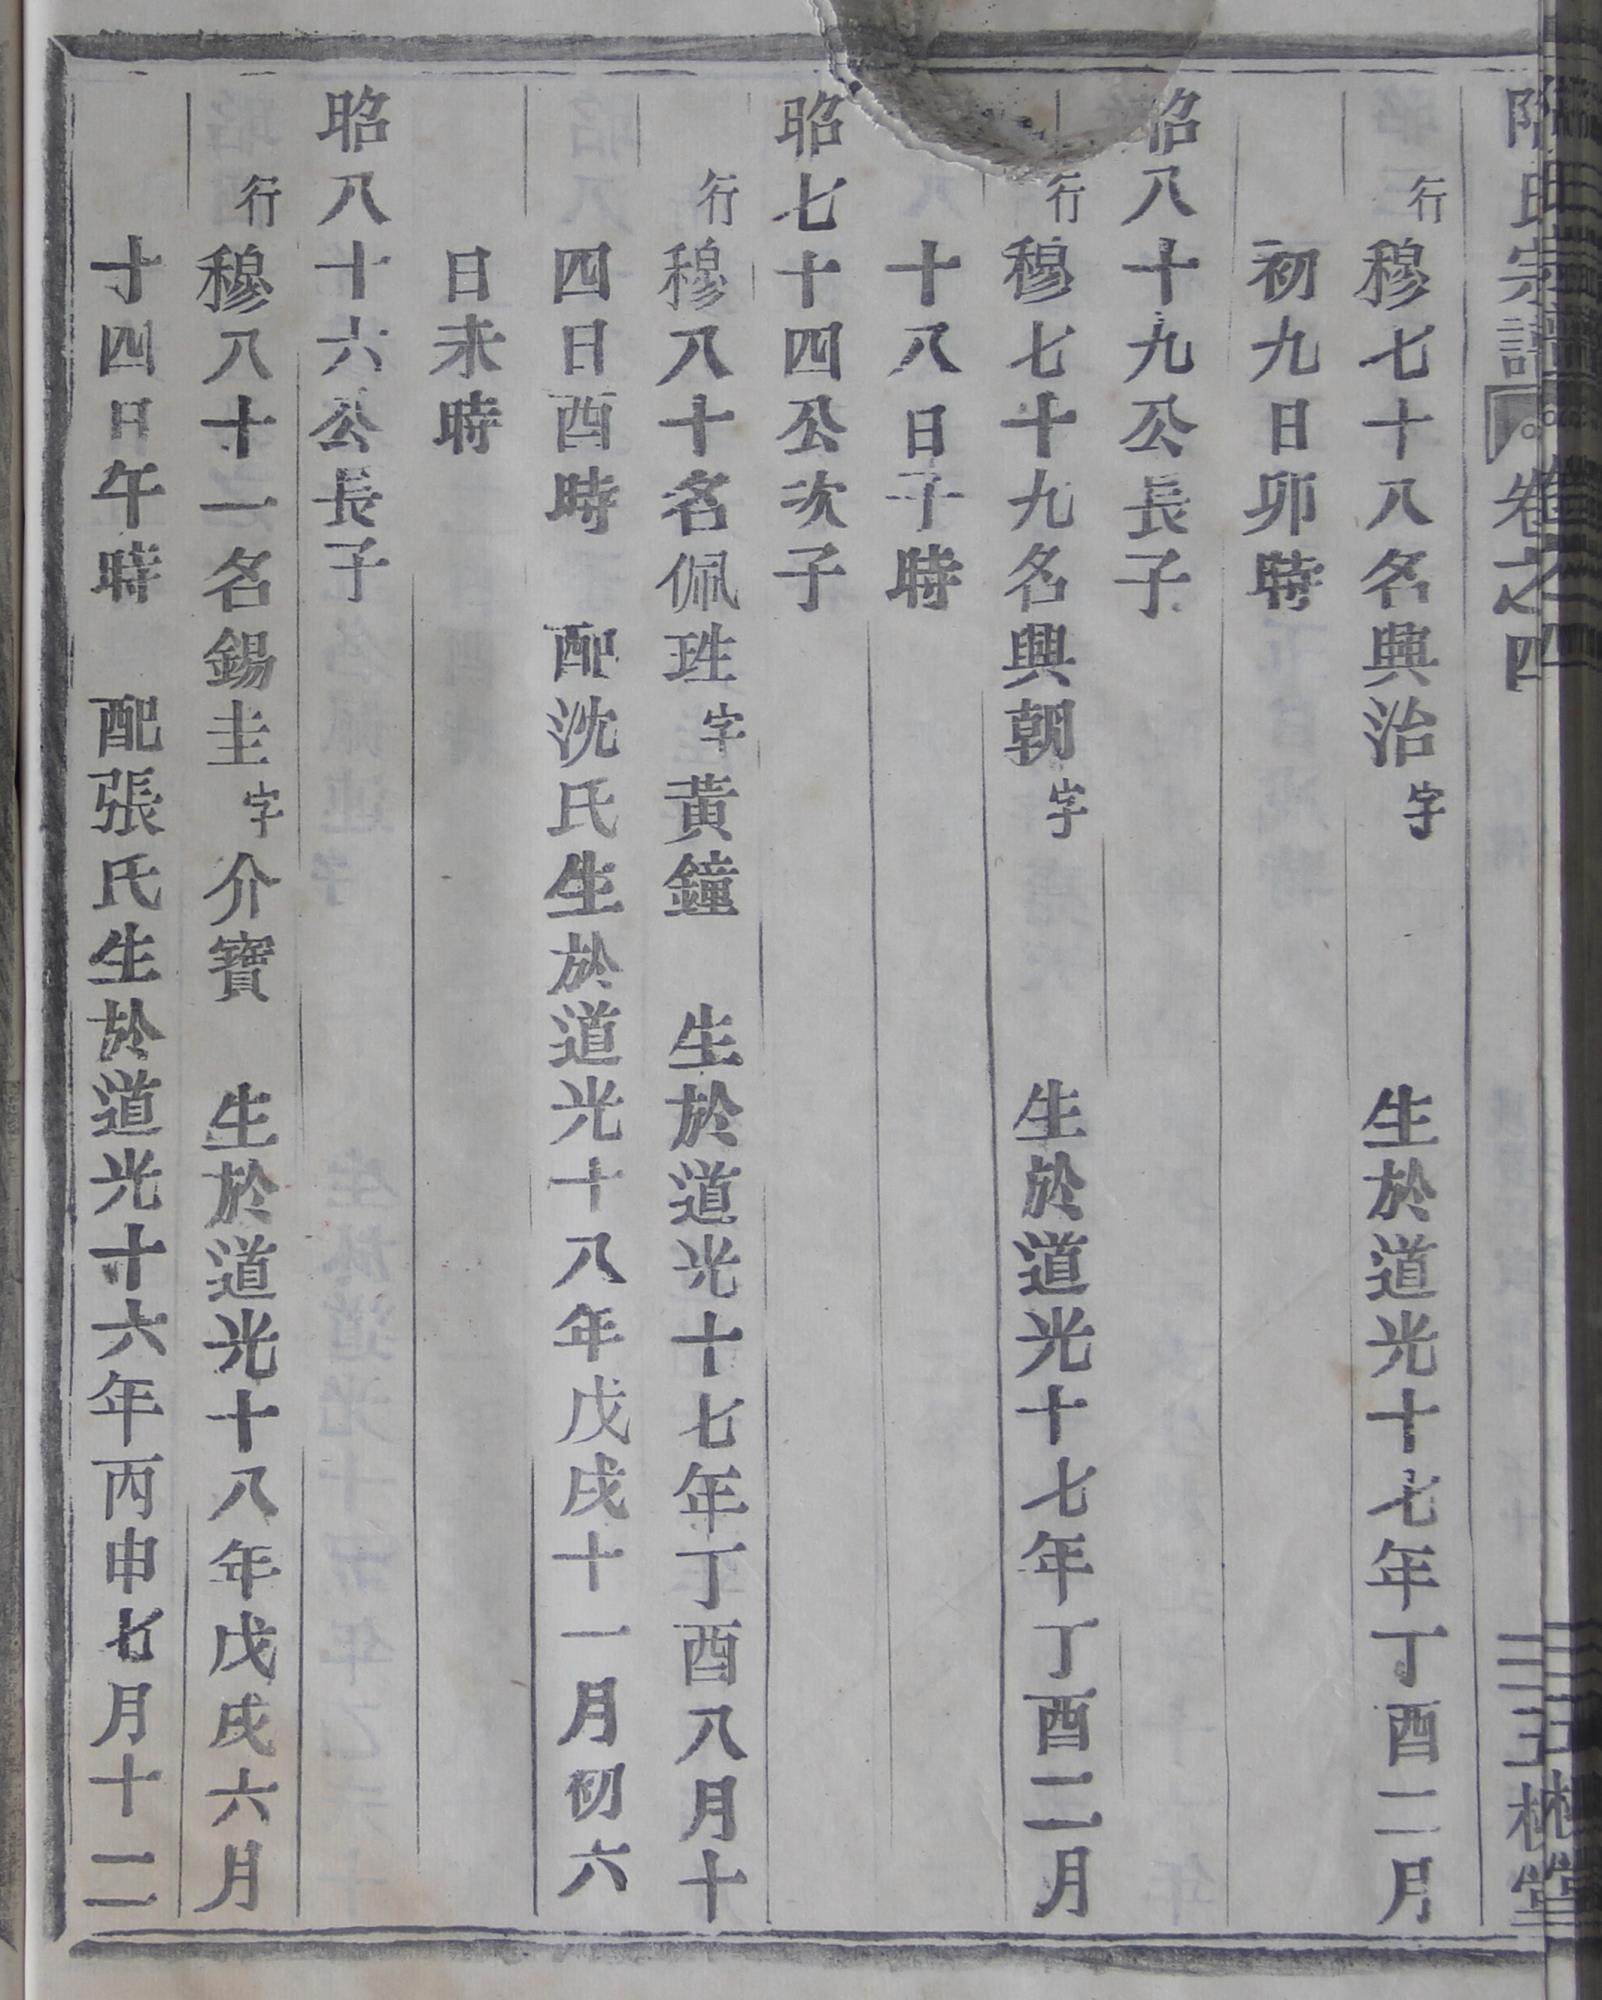 氏宗譜 卷之四 三五槐堂
行穆七十八名興治字 生於道光十七年丁酉二月
初九日卯時
昭八十九公長子
行穆七十九名興朝字 生於道光十七年丁酉三月
十八日子時
昭七十四公次子
行穆八十名佩珄字黃鐘 生於道光十七年丁酉八月十
四日酉時 配沈氏生於道光十八年戊戌十一月初六
日未時
昭八十六公長子
行穆八十一名錫圭字介寶 生於道光十八年戊戌六月
十四日午時 配張氏生於道光十六年丙申七月十二